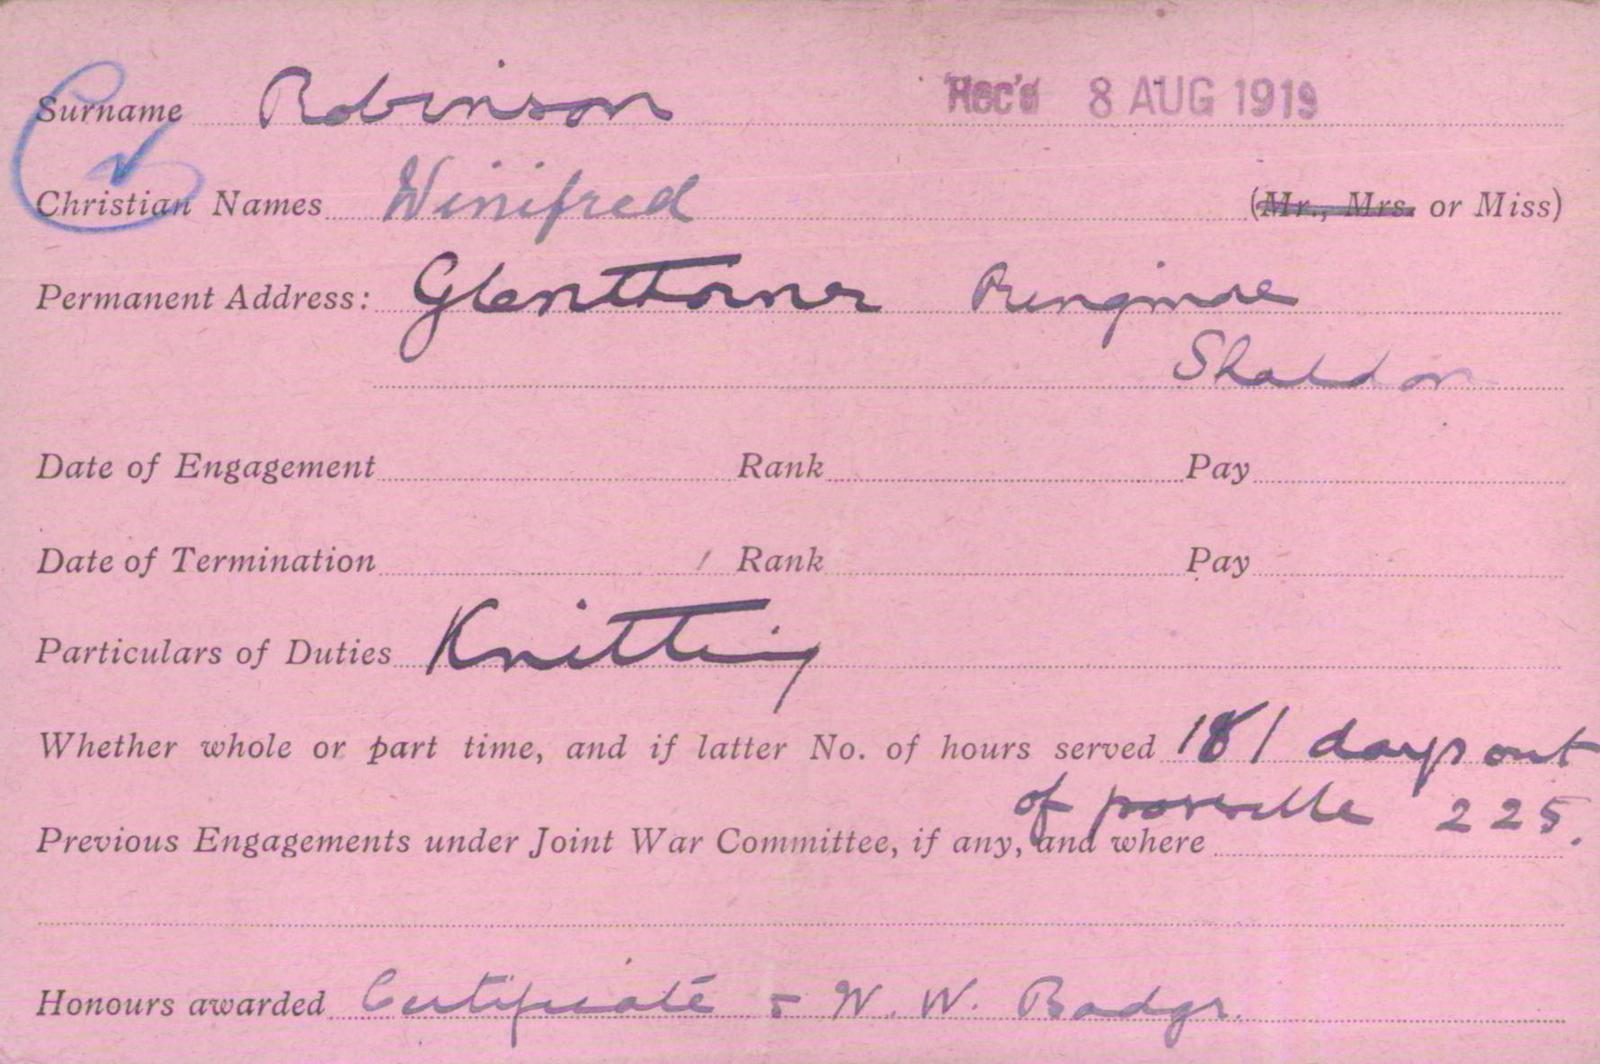 Surname Robinson Rec'd 8 AUG 1919
Christian Names Winifred (Mr., Mrs. or Miss)
Permanent Address: Glenthorne Ringmore
Shaldon
Date of Engagement Rank Pay
Date of Termination Rank Pay
Particulars of Duties Knitting
Whether whole or part time, and if latter No. of hours served 181 days out
of possible 225.
Previous Engagements under Joint War Committee, if any, and where
Honours awarded Certificate & W. W. Badge.